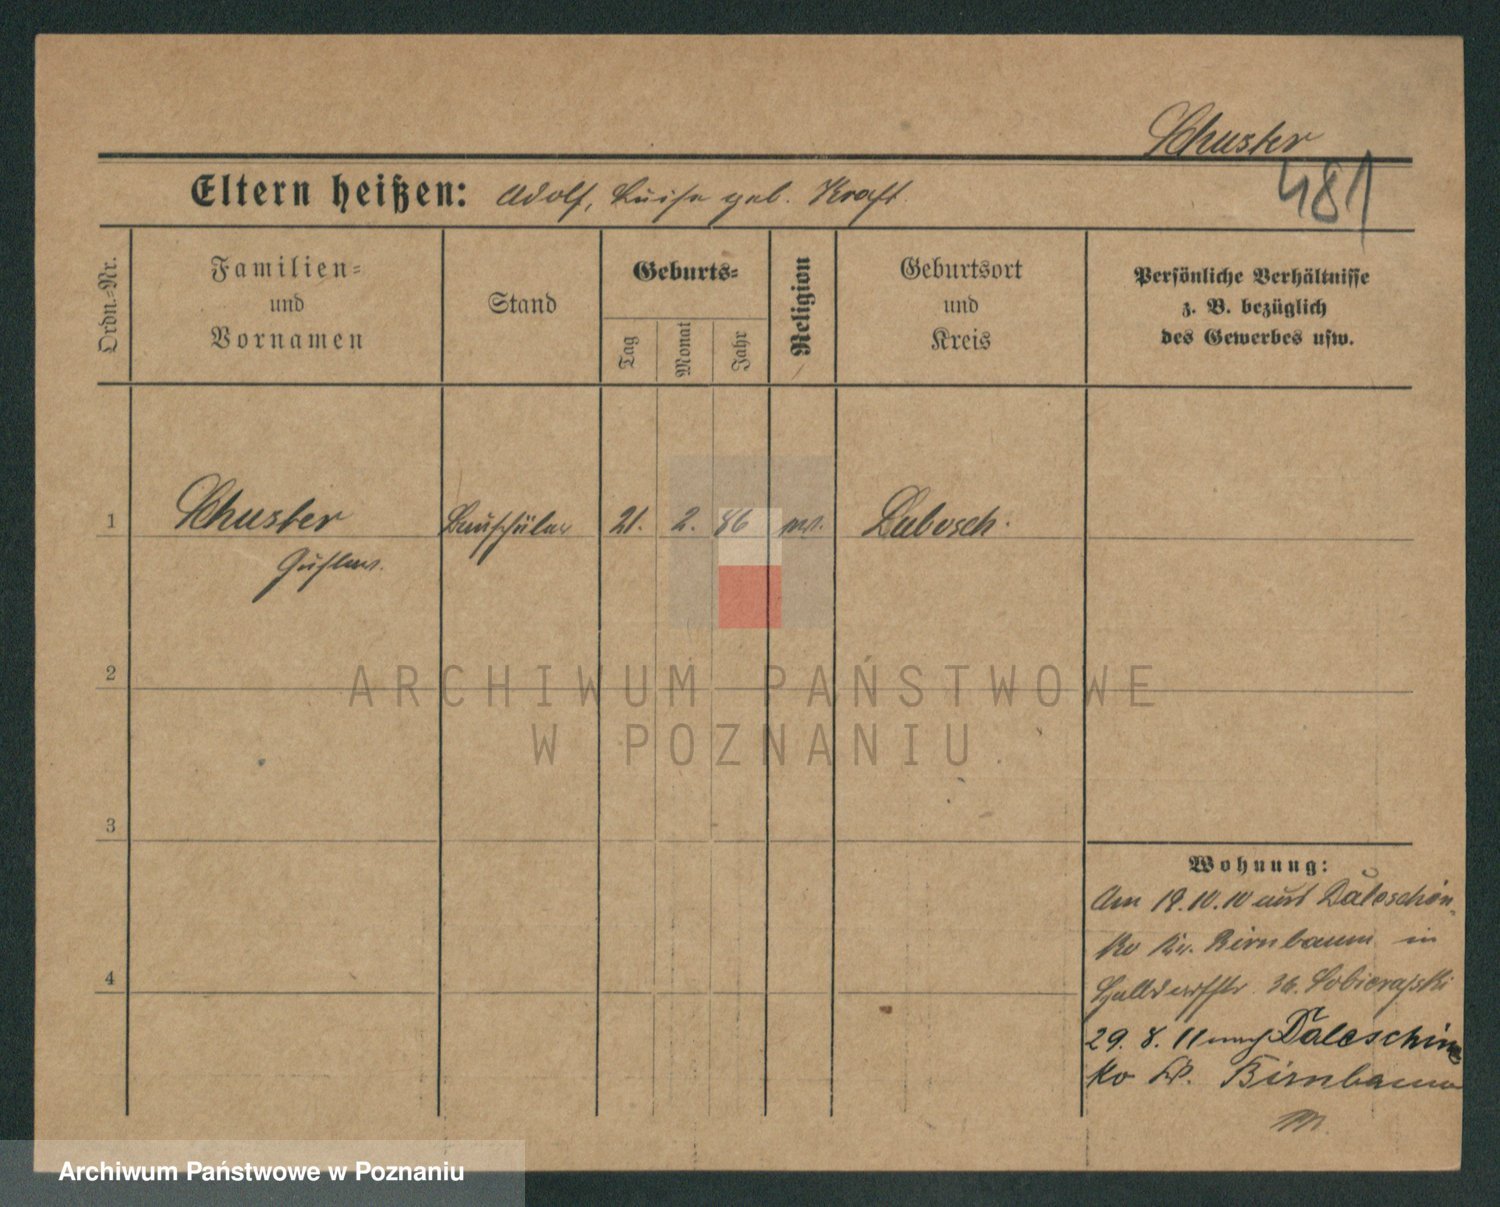 Schuster
481
Eltern heißen: Adolf, Luise geb. Kraft
Ordn.-Nr.
Familien-
und
Vornamen
Stand
Geburts-
Tag
Monat
Jahr
Religion
Geburtsort
und
Kreis
Persönliche Verhältnisse
z. B. bezüglich
des Gewerbes usw.
1
Schuster
Gustav
Bauschüler
21.
2.
86
Lubosch.
2
3
4
Wohnung:
Am 19.10.10 aus Daleschin-
ko Kr. Birnbaum in
36. Sobierajski
29. 8. 11 nach Daleschin
ko Kr. Birnbaum
ARCHIWUM PAŃSTWOWE
W POZNANIU
Archiwum Państwowe w Poznaniu